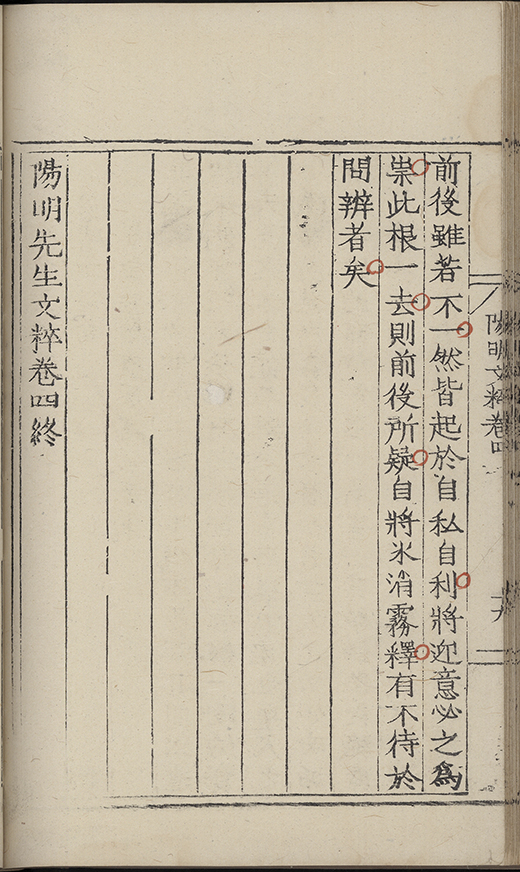 前後雖若不一然皆起於自私自利將迎意必之爲
祟此根一去則前後所疑自將氷消霧釋有不待於
問辨者矣
陽明先生文粹卷四終
陽明文粹卷四